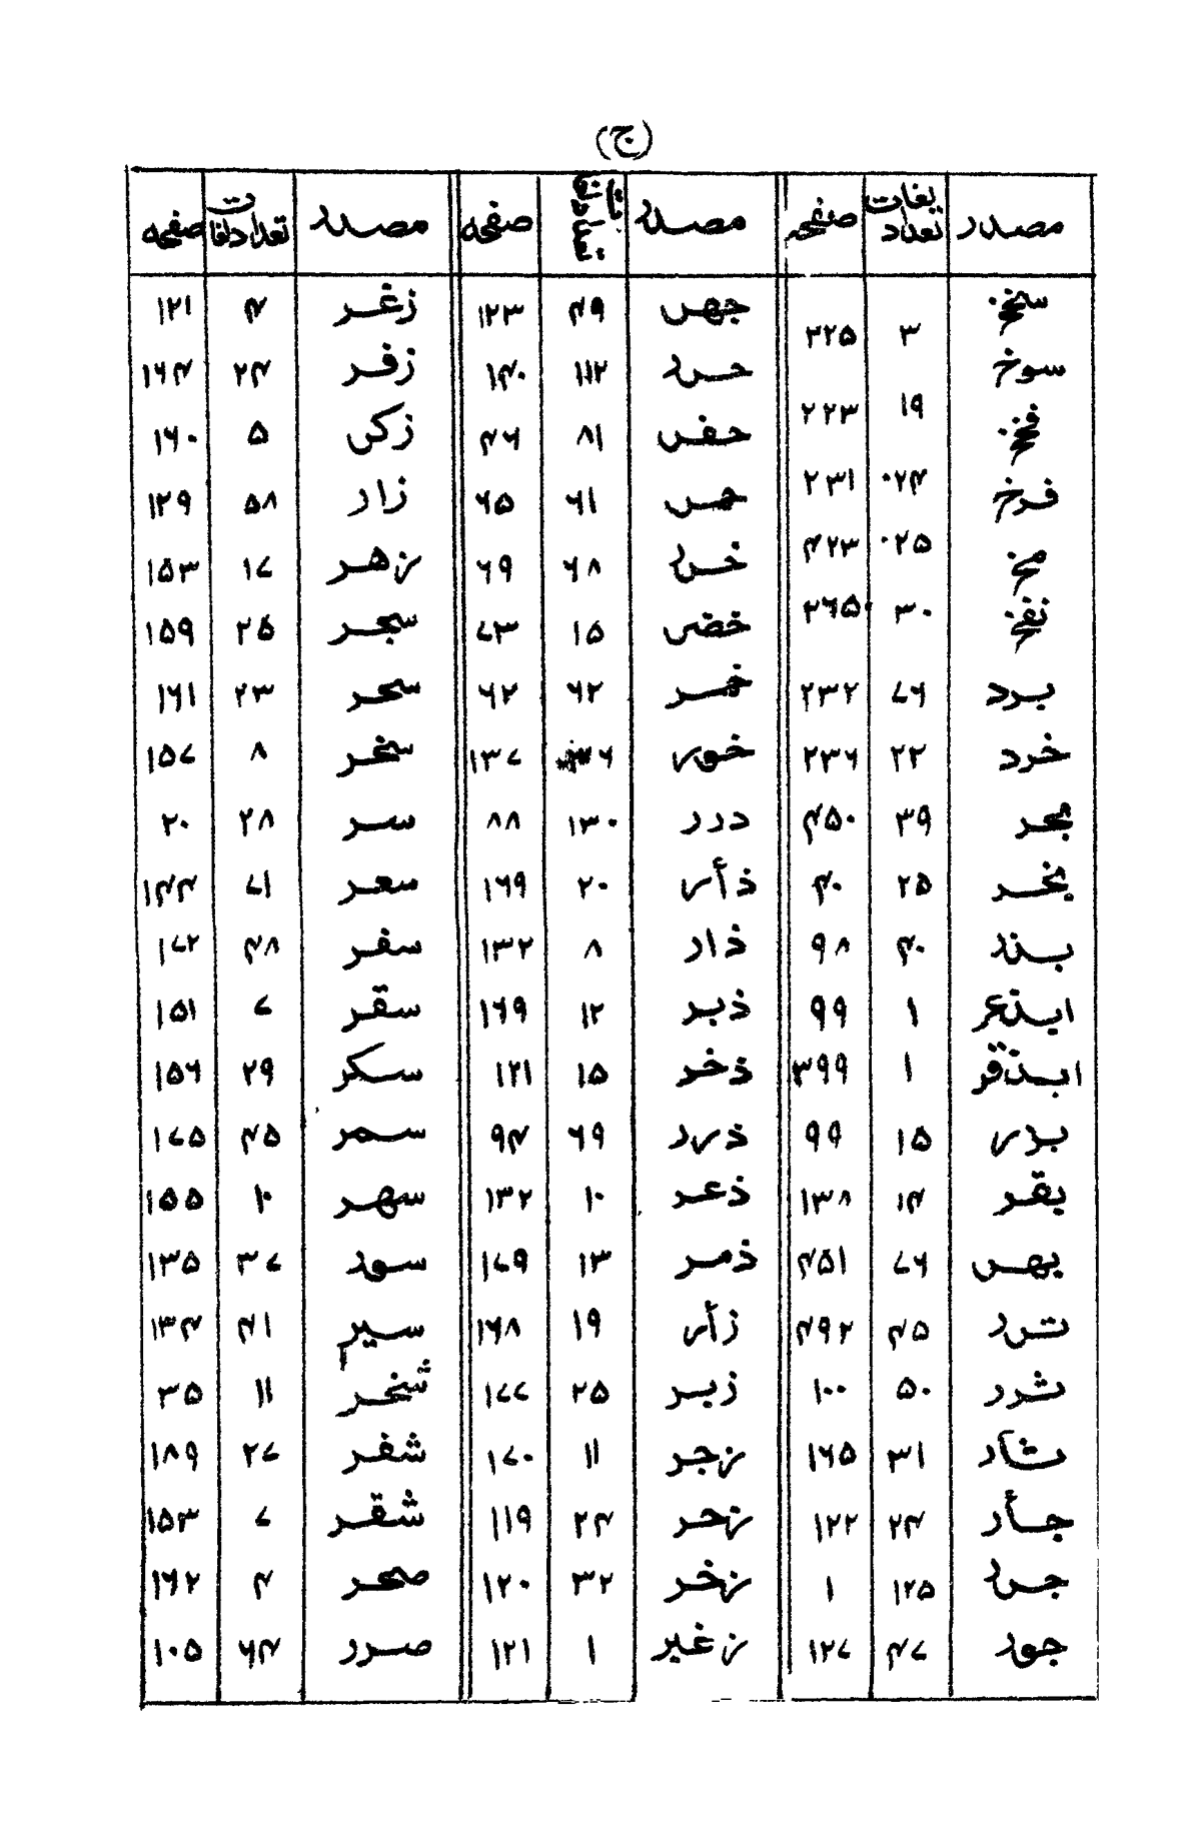 (ج)
مصدر تعداد لغات صفحه مصدر تعداد لغات صفحه مصدر تعداد لغات صفحه
سنخ ۳ ۲۲۵ جهر ۴۹ ۱۲۳ زغر ۴ ۱۲۱
سوخ ۱۹ ۲۲۳ حرر ۱۱۲ ۱۴۰ زفر ۲۴ ۱۶۴
۲۴ ۲۳۱ حفر ۸۱ ۴۶ زکر ۵ ۱۶۰
فرخ ۲۵ ۴۲۳ ۶۱ ۶۵ زار ۵۸ ۱۲۹
مخ ۳۰ ۲۶۵ خرر ۶۸ ۶۹ زهر ۱۷ ۱۵۳
نفخ خضر ۱۵ ۷۳ سجر ۲۵ ۱۵۹
برد ۷۶ ۲۳۲ خمر ۶۲ ۶۲ سحر ۲۳ ۱۶۱
خرد ۲۲ ۲۳۶ خور ۱۳۷ سخر ۸ ۱۵۷
بحر ۳۹ ۴۵۰ درر ۱۳۰ ۸۸ سر ۲۸ ۲۰
بخر ۲۵ ۴۰ ذأر ۲۰ ۱۶۹ سعر ۷۱ ۱۴۴
بذر ۴۰ ۹۸ ذار ۸ ۱۳۲ سفر ۴۸ ۱۷۲
ابذعر ۱ ۹۹ ذبر ۱۲ ۱۶۹ سقر ۷ ۱۵۱
ابذقر ۱ ۳۹۹ ذخر ۱۵ ۱۲۱ سکر ۲۹ ۱۵۶
برر ۱۵ ۹۹ ذرر ۶۹ ۹۴ سمر ۴۵ ۱۷۵
بقر ۱۴ ۱۳۸ ذعر ۱۰ ۱۳۲ سهر ۱۰ ۱۵۵
بهر ۷۶ ۴۵۱ ذمر ۱۳ ۱۷۹ سور ۳۷ ۱۳۵
ترر ۴۵ ۴۹۲ زأر ۱۹ ۱۶۸ سیر ۴۱ ۱۳۴
ثرر ۵۰ ۱۰۰ زبر ۲۵ ۱۷۷ شخر ۱۱ ۳۵
ثار ۳۱ ۱۶۵ زجر ۱۱ ۱۷۰ شفر ۲۷ ۱۸۹
جأر ۲۴ ۱۲۲ زحر ۲۴ ۱۱۹ شقر ۷ ۱۵۳
جرر ۱۲۵ ۱ زخر ۳۲ ۱۲۰ صحر ۴ ۱۶۲
جور ۴۷ ۱۲۷ زغبر ۱ ۱۲۱ صرر ۶۴ ۱۰۵